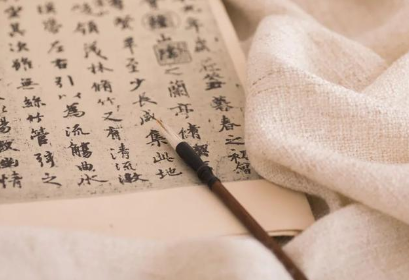 年歲在癸丑暮春之初會
稽山陰之蘭亭脩禊
賢畢至少長咸集此地
峻領茂林脩竹又有清流激
帶左右引以為流觴曲水
其次雖無絲竹管弦之
暢叙幽情